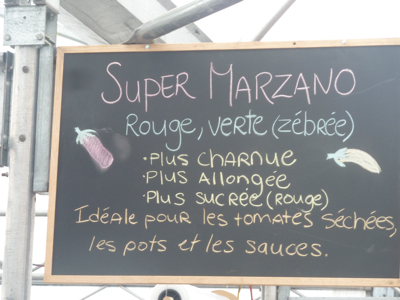 Super Marzano
Rouge, verte (zébrée)
• Plus charnue
• Plus allongée
• Plus sucrée (rouge)
Idéale pour les tomates séchées,
les pots et les sauces.